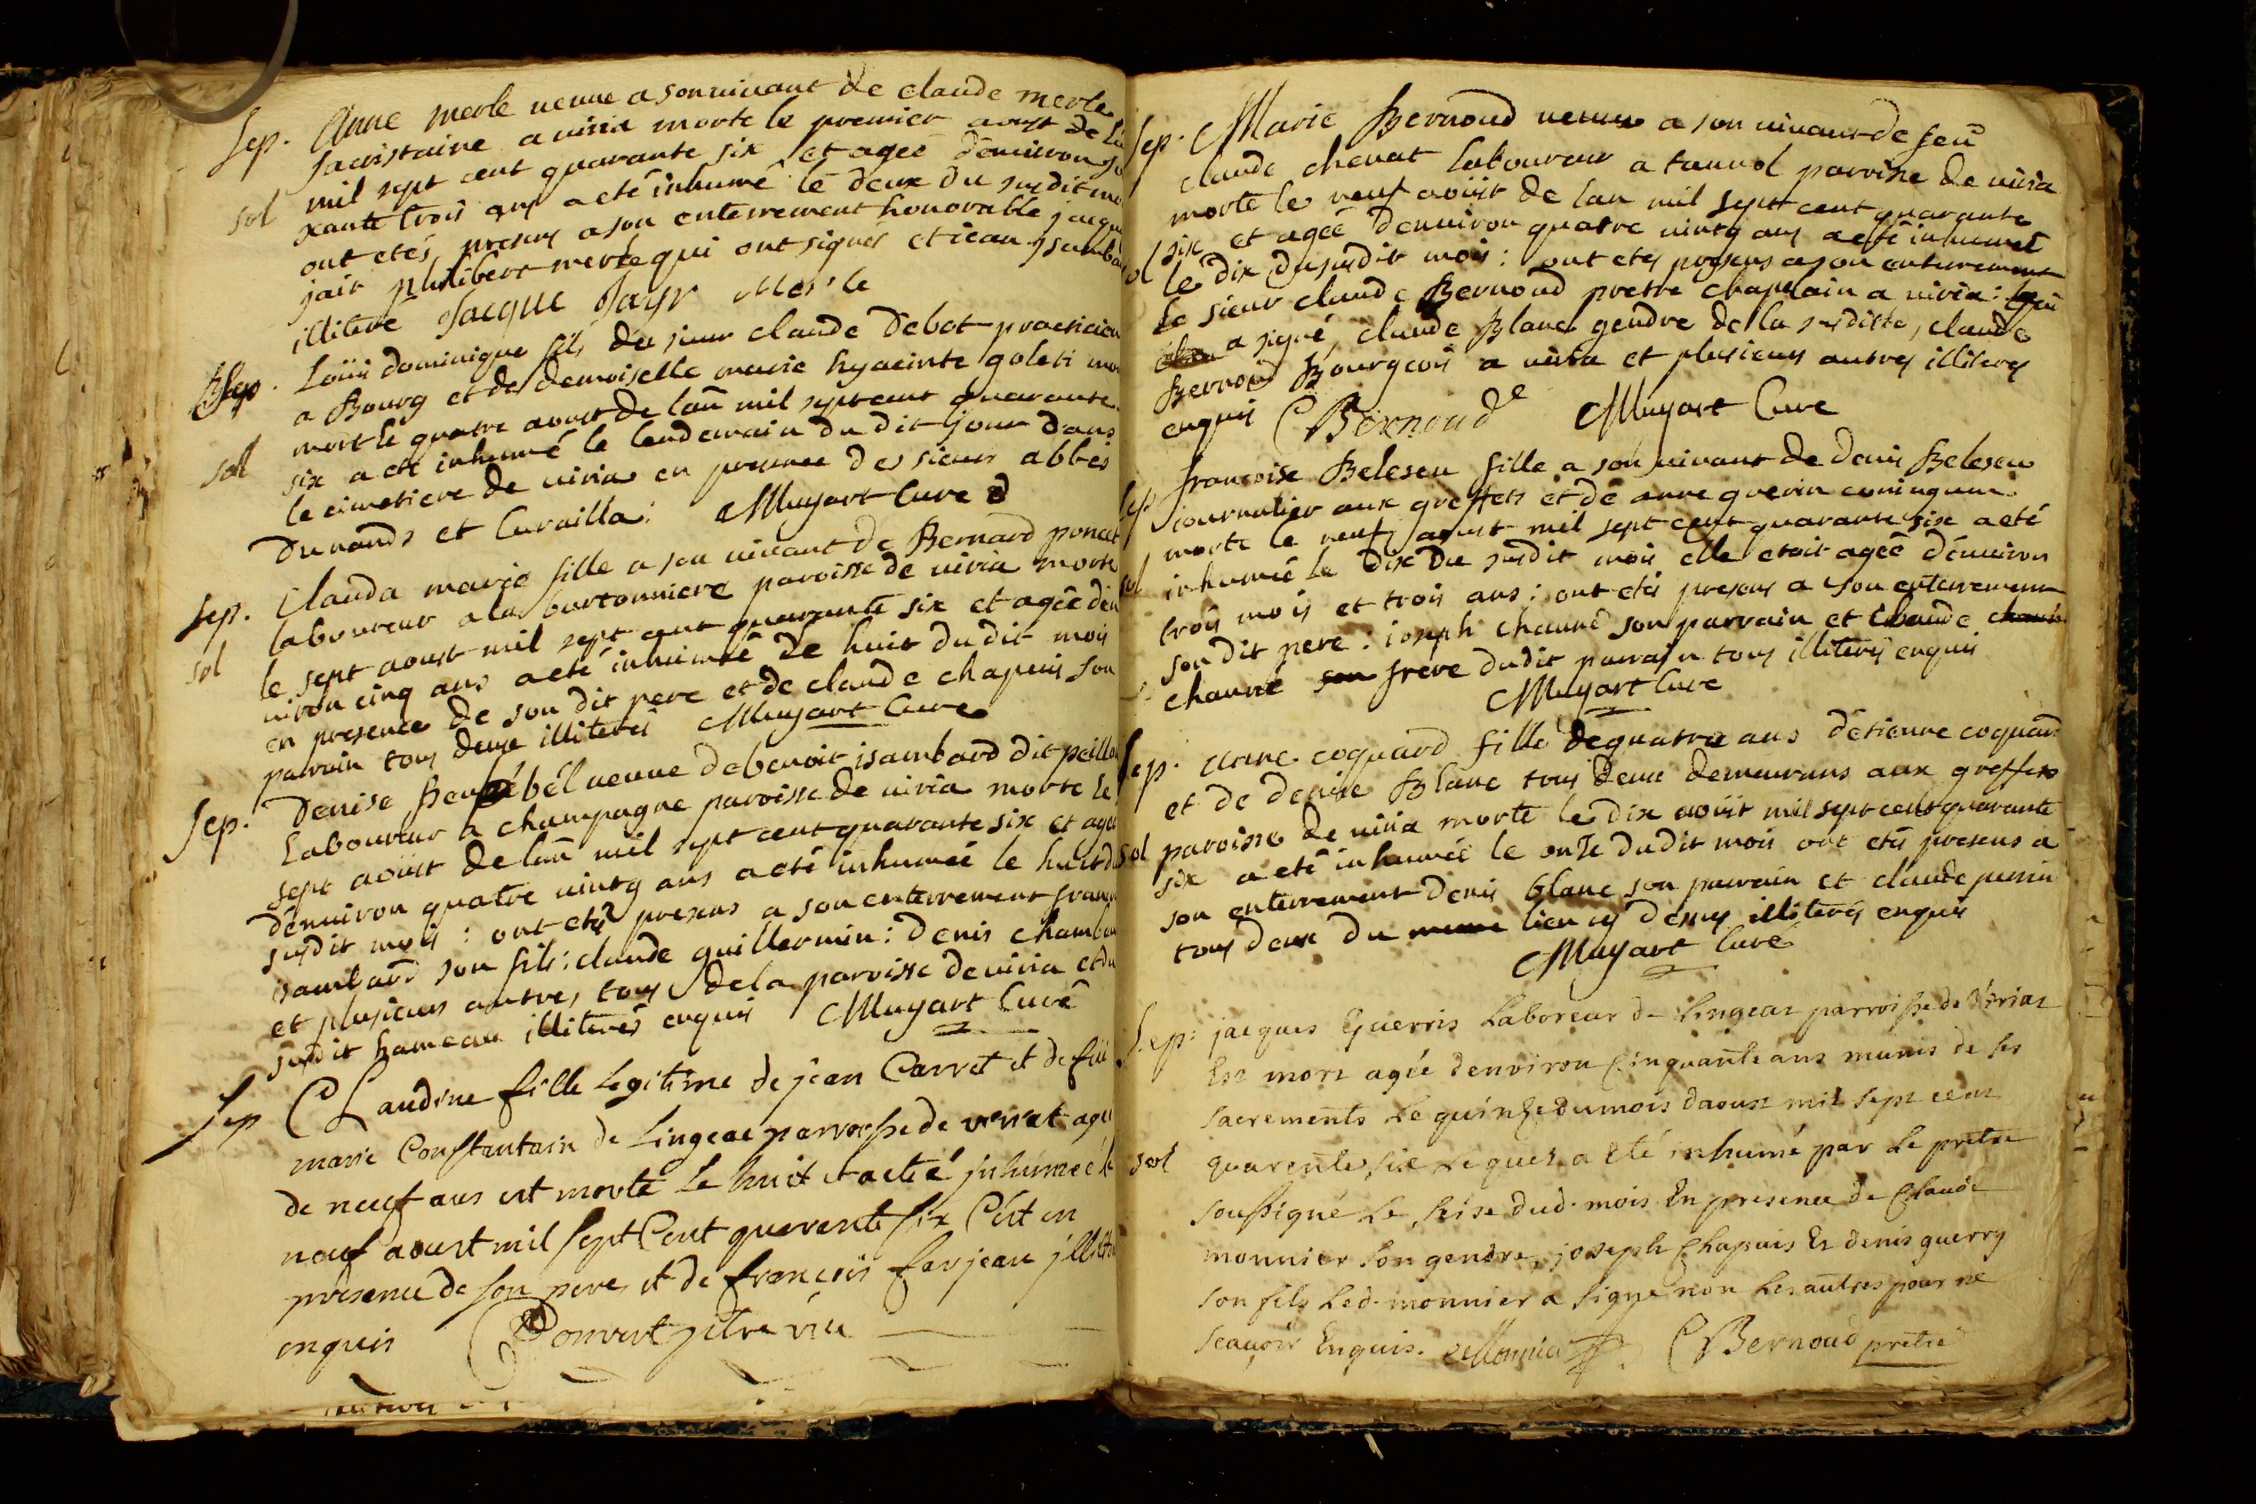 Sep. Anne merle veuve a son vivant de claude merle
sacristaine a viria morte le premier aoust de
sol mil sept cent quarante six et ageé denviron
xante trois ans a eté inhumé le deux du susdit
ont etés presens a son enterrement honorable
jair philibert merle qui ont signés et jean
illiteré Jacque Jayr Merle
Sep. Loüis dominique fils du sieur claude Debot praticien
a Bourg et de demoiselle marie hyacinte goleti
mort le quatre aoust de lan mil sept cent quarante
sol six a eté inhumé le lendemain du dit jour dans
le cimetiere de viria en presence des sieurs abbés
Durands et Cuvailla: Muyart Curé
Sep. Clauda marie fille a son vivant de Bernard poncet
laboureur a la bartonniere paroisse de viria morte
sol le sept aoust mil sept cent quarante six et ageé den
viron cinq ans a eté inhumeé le huit du dit mois
en presence de son dit pere et de claude chapuis son
parrain tous deux illiterés Muyart Curé
Sep. Denise bel veuve de benoit isambard dit peillo
Laboureur a champagne paroisse de viria morte le
sept aoüst de lan mil sept cent quarante six et ageé
denviron quatre vintg ans a eté inhumeé le huit du
susdit mois: ont etés presens a son enterrement
isambard son fils: claude guillermin: denis
et plusieurs autres tous de la paroisse de viria et du
susdit hameau illiterés enquis Muyart Curé
Sep Claudine fille legitime de jean Carret et de
marie Constantain de Lingeat parroisse de viriat ageé
de neuf ans est morte le huit et a eté jnhumeé le
neuf aoust mil sept Cent quarente six C'est en
presence de son pere et de françois farjean
enquis Convert ptre vic
Sep. Marie Bernoud veuve a son vivant de feu
claude chenat laboureur a tannol paroisse de viria
morte le neuf aoüst de lan mil sept cent quarante
sol six et ageé denviron quatre vintg ans a eté inhumeé
le dix du susdit mois: ont etes presens a son enterrement
Le sieur claude Bernoud pretre chapelain a viria: qui
a signé, claude Blanc gendre de la susditte, claude
Bernoud Bourgeois a viria et plusieurs autres illiterés
enquis C Bernoud Muyart Curé
Sep francoise Belesen fille a son vivant de denis Belesen
journalier aux greffets et de anne guerin
morte le neuf aoust mil sept cent quarante six a eté
sol inhumeé le dix du susdit mois elle etoit ageé denviron
trois mois et trois ans: ont etés presens a son enterrement
son dit pere: joseph chauné son parrain et claude
chauné son frere dudit parrain tous illiterés enquis
Muyart Curé
Sep. Anne coquard fille de quatre ans detienne coquard
et de denise Blanc tous deux demeurans aux greffets
sol paroisse de viria morte le dix aoüst mil sept cent quarante
six a eté inhumeé le onze dudit mois ont etés presens a
son enterrement denis blanc son parrain et claude
tous deux du lieu cy dessus illiterés enquis
Muyart Curé
Sep: jacques Guerris Laboreur de Lingeat parroisse de Viriat
Est mort agée denviron Cinquante ans munis de ses
sacrements Le quinze du mois daoust mil sept cent
sol quarente six Lequel a Eté inhumé par Le pretre
soussigné Le seise dud. mois En presence de Claude
monnier son gendre, joseph Chapuis Et denis guerry
son fils Led. monnier a signe non Les autres pour ne
scavoir Enquis. Monnier C Bernoud pretre